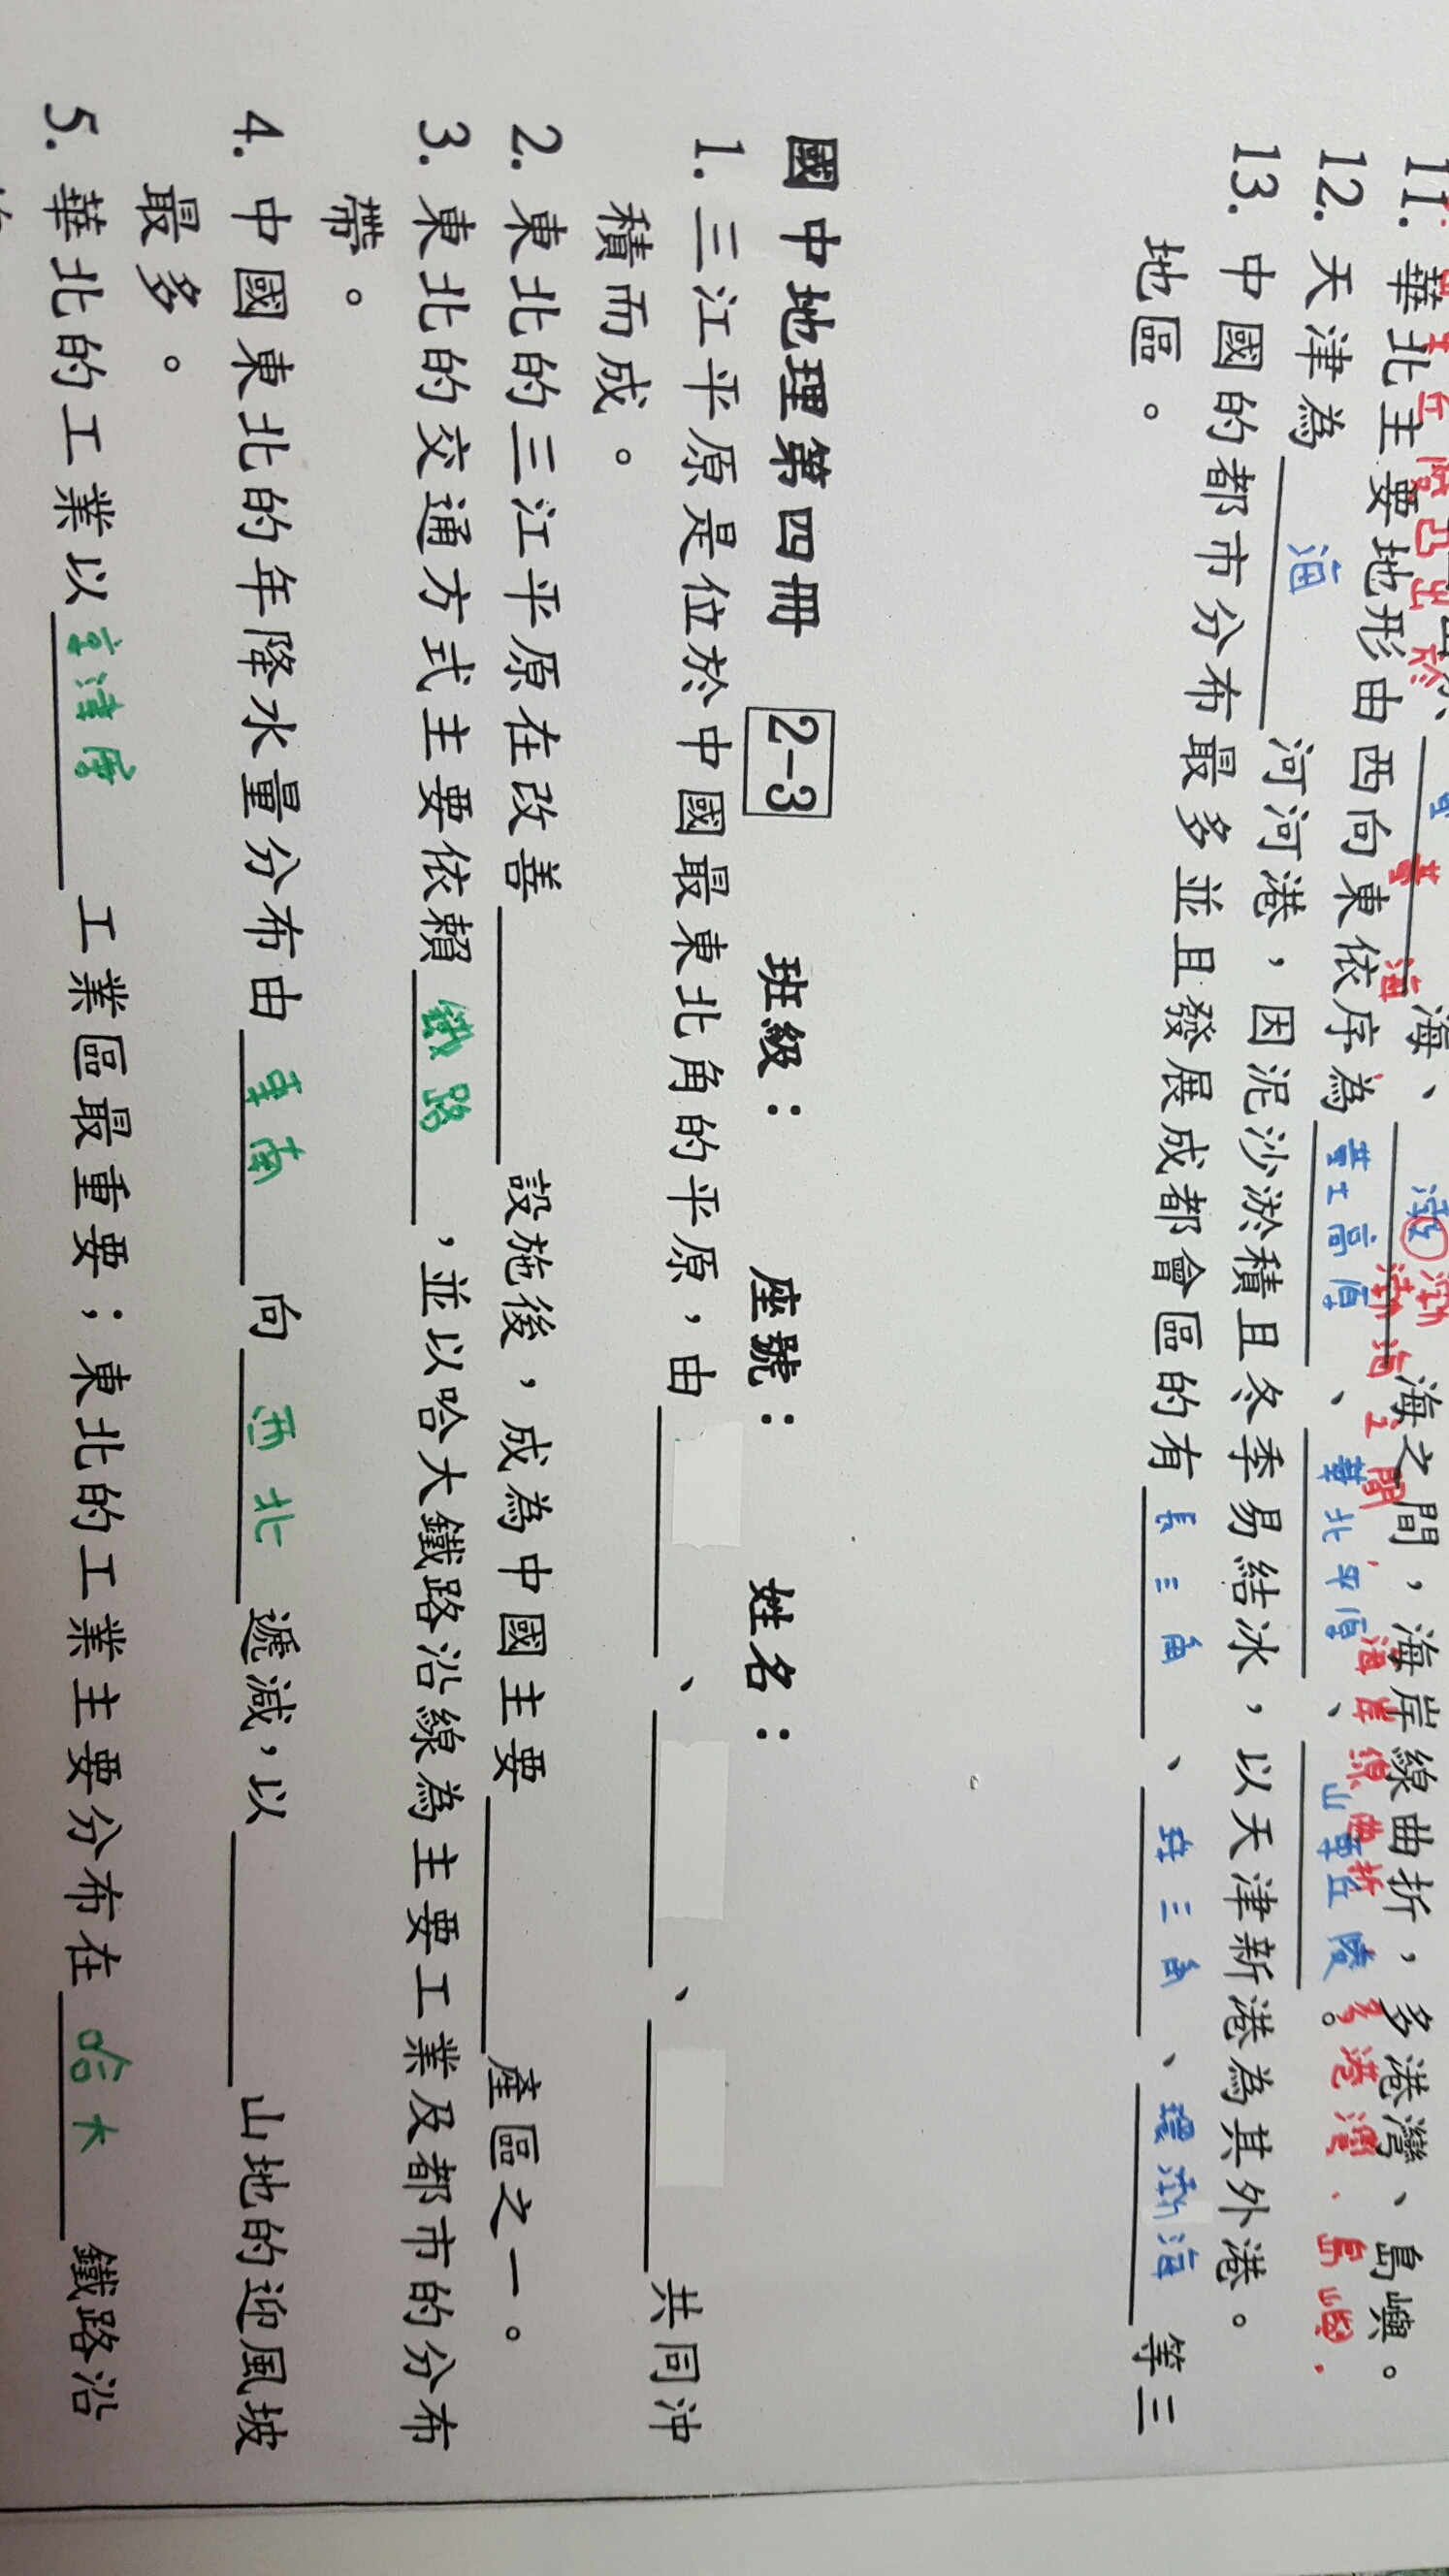 11. 華北主要地形由西向東依序為 黃土高原 、 華北平原 、 山東丘陵 。
海、 海之間，海岸線曲折，多港灣、島嶼。
海岸線曲折 多港灣、島嶼，
12. 天津為 海 河河港，因泥沙淤積且冬季易結冰，以天津新港為其外港。
13. 中國的都市分布最多並且發展成都會區的有 長三角 、 珠三角 、 環渤海 等三
地區。
國中地理第四冊 2-3 班級： 座號： 姓名：
1. 三江平原是位於中國最東北角的平原，由 、 、 共同沖
積而成。
2. 東北的三江平原在改善 設施後，成為中國主要 產區之一。
3. 東北的交通方式主要依賴 鐵路 ，並以哈大鐵路沿線為主要工業及都市的分布
帶。
4. 中國東北的年降水量分布由 東南 向 西北 遞減，以 山地的迎風坡
最多。
5. 華北的工業以 京津唐 工業區最重要；東北的工業主要分布在 哈大 鐵路沿